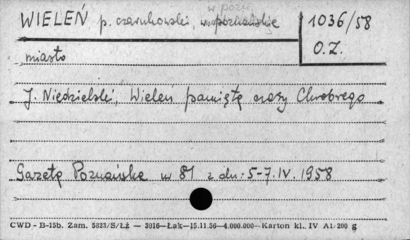 WIELEŃ p. czarnkowski, w. poznańskie
w pozn
1036/58
O.Z.
miasto
J. Niedzielski, Wieleń pamięta czasy Chrobrego
Gazeta Poznańska nr 81 z dn. 5-7.IV.1958
CWD - B-15b. Zam. 5823/S/Łż — 3016—Łak—15.11.56—4.000.000—Karton kl. IV A1/200 g